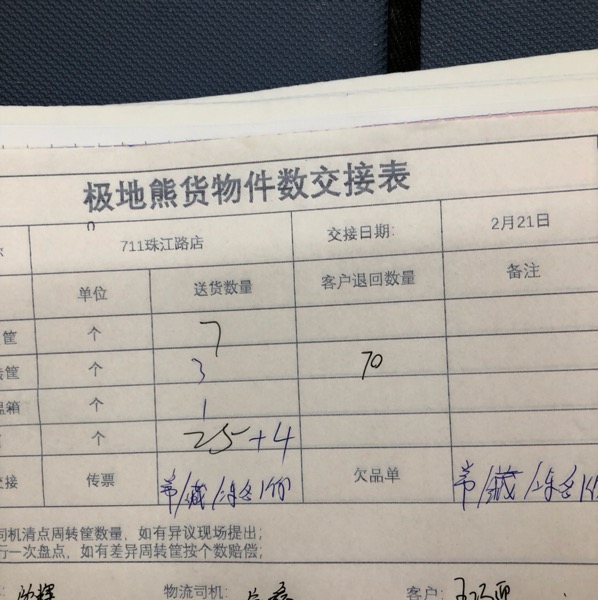 极地熊货物件数交接表
711珠江路店 交接日期: 2月21日
单位 送货数量 客户退回数量 备注
筐 个 7
筐 个 3 70
箱 个 1
个 25+4
接 传票 常/藏/冻各1份 欠品单 常/藏/冻各1份
司机清点周转筐数量，如有异议现场提出；
行一次盘点，如有差异周转筐按个数赔偿；
物流司机: 客户: